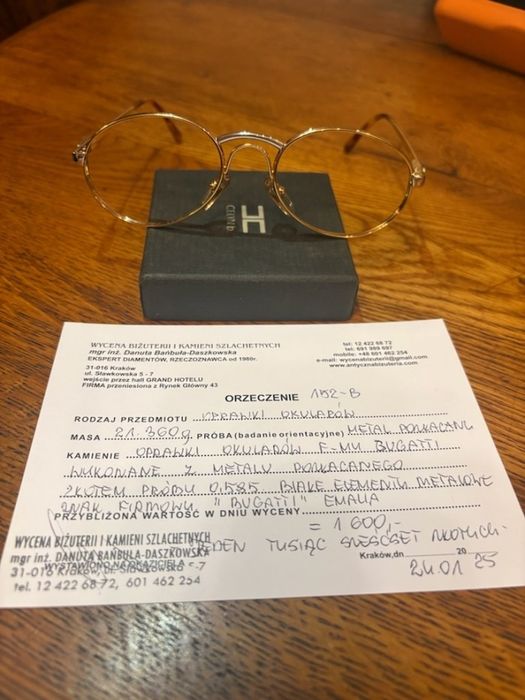 H
WYCENA BIŻUTERII I KAMIENI SZLACHETNYCH
mgr inż. Danuta Bańbuła-Daszkowska
EKSPERT DIAMENTÓW, RZECZOZNAWCA od 1980r.
31-016 Kraków
ul. Sławkowska 5 - 7
wejście przez hall GRAND HOTELU
FIRMA przeniesiona z Rynek Główny 43
tel: 12 422 68 72
tel: 601 989 697
mobile: +48 601 462 254
e-mail: wycenabizuterii@gmail.com
www.antycznabizuteria.com
ORZECZENIE 152-B
RODZAJ PRZEDMIOTU OPRAWKI OKULARÓW
MASA 21.360g PRÓBA (badanie orientacyjne) METAL POZŁACANY
KAMIENIE OPRAWKI OKULARÓW F-MY BUGATTI
WYKONANE Z METALU POZŁACANEGO
ZŁOTEM PRÓBY 0.585 BIAŁE ELEMENTY METALOWE
ZNAK FIRMOWY "BUGATTI" EMALIA
PRZYBLIŻONA WARTOŚĆ W DNIU WYCENY
= 1 600,-
JEDEN TYSIĄC SZEŚĆSET ZŁOTYCH
WYCENA BIŻUTERII I KAMIENI SZLACHETNYCH
mgr inż. DANUTA BAŃBUŁA-DASZKOWSKA
31-016 Kraków, ul. Sławkowska 5-7
tel. 12 422 68 72, 601 462 254
Kraków, dn 20
24.01 25